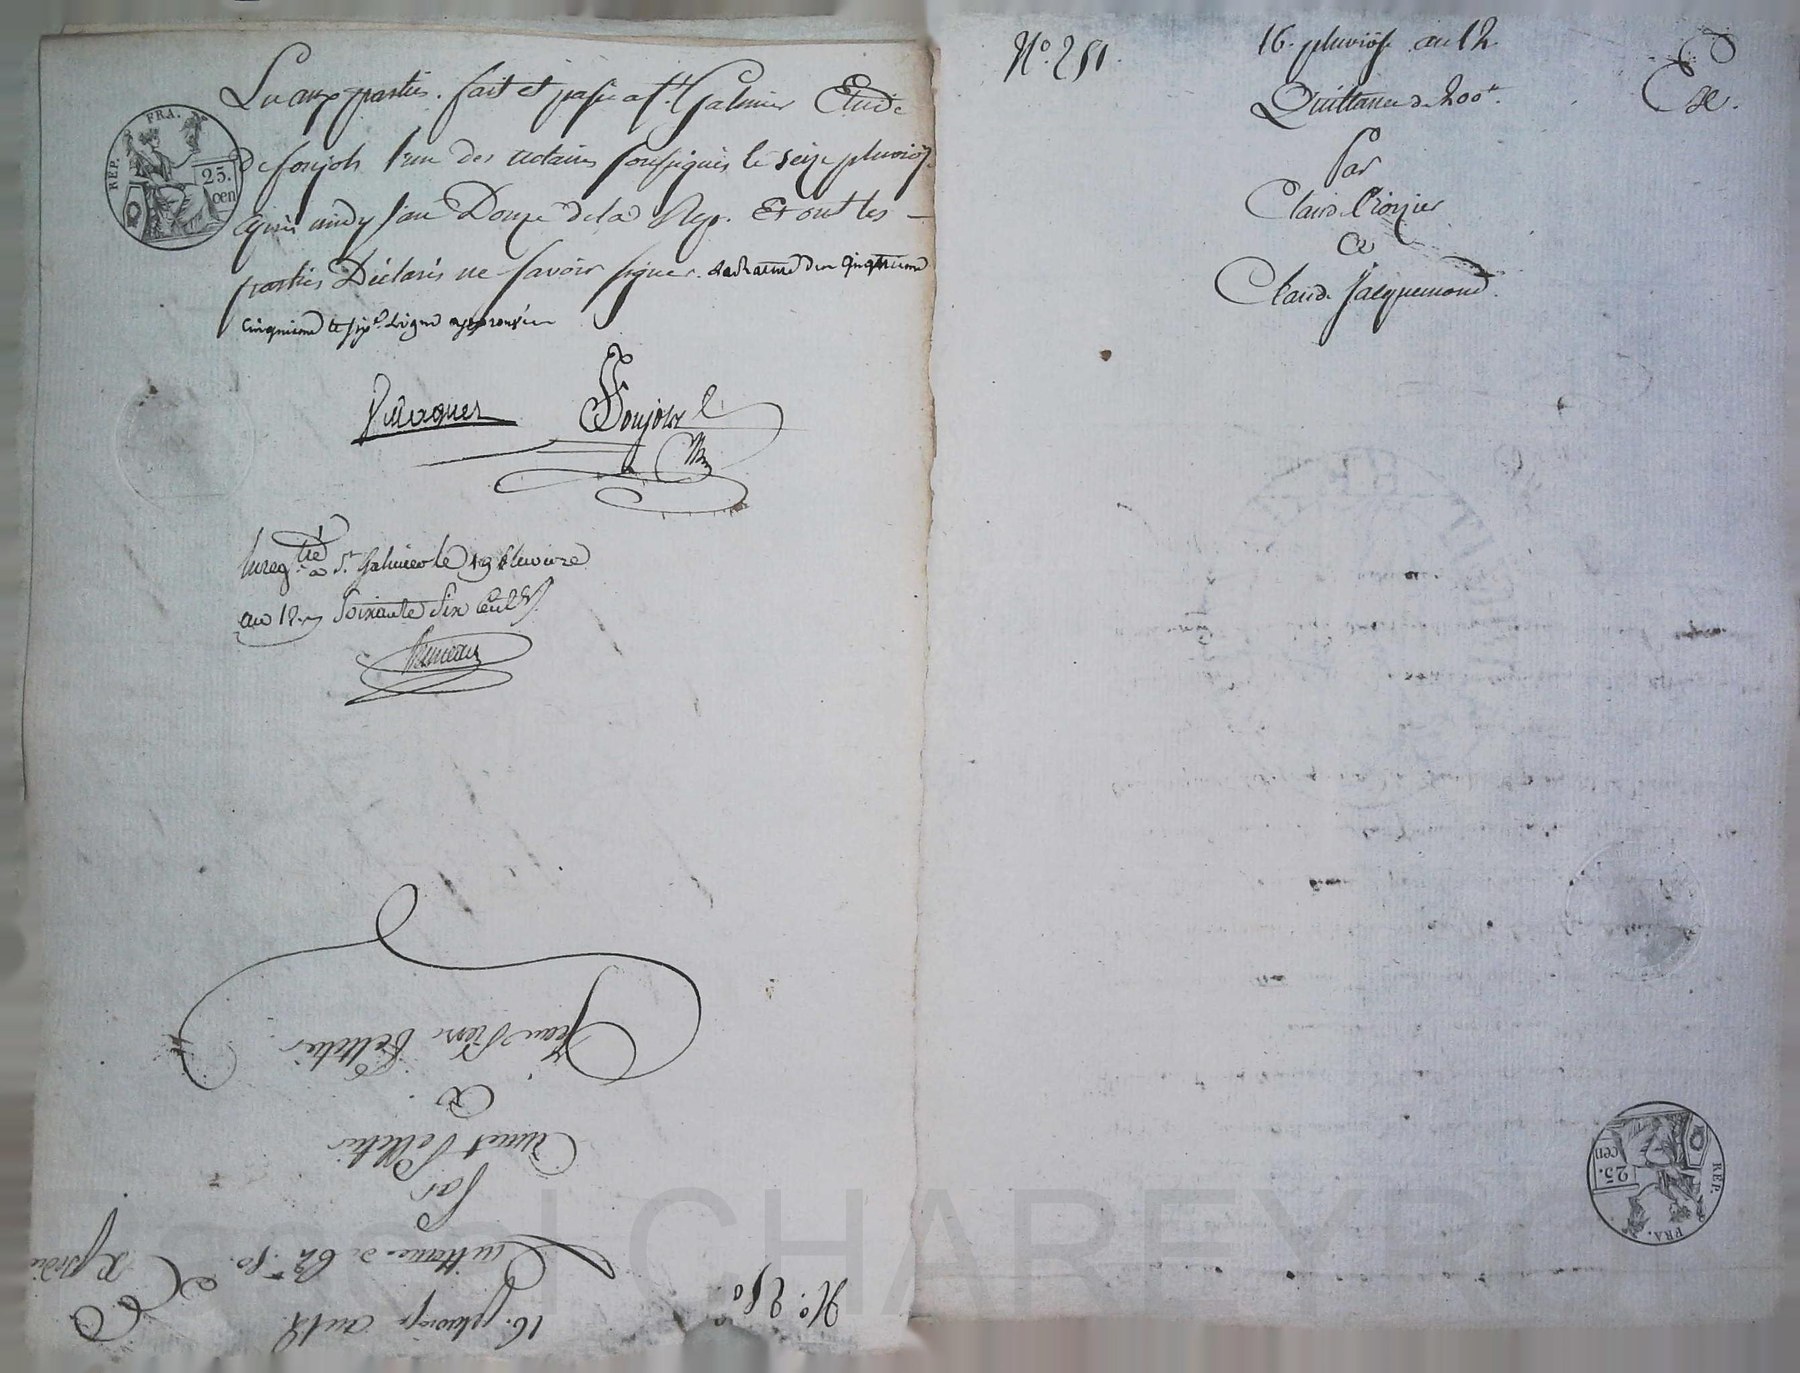 Lu aux parties. fait et passé a St Galmier Etude
de fonjols l'une des notaires soussignés le seize pluviose
après midy l'an Douze de la Rep. Et ont les
parties Déclarés ne savoir signer.
cinquieme et six.e Ligne approuvée
Fonjols
Enreg.tré a St Galmier le 19 Pluviose
an 12 Soixante Six Cent.
REP. FRA.
25. cen
N.o 251.
16. pluviose an 12
Quittance de 200.
Par
Claude Crozier
A
Claude Jacquemond.
N.o 250.
16. pluviose an 12
Quittance de 62. 50.
Par
Pelletier
A
Jean Pierre Pelletier
REP. FRA.
25. cen
CHAREY